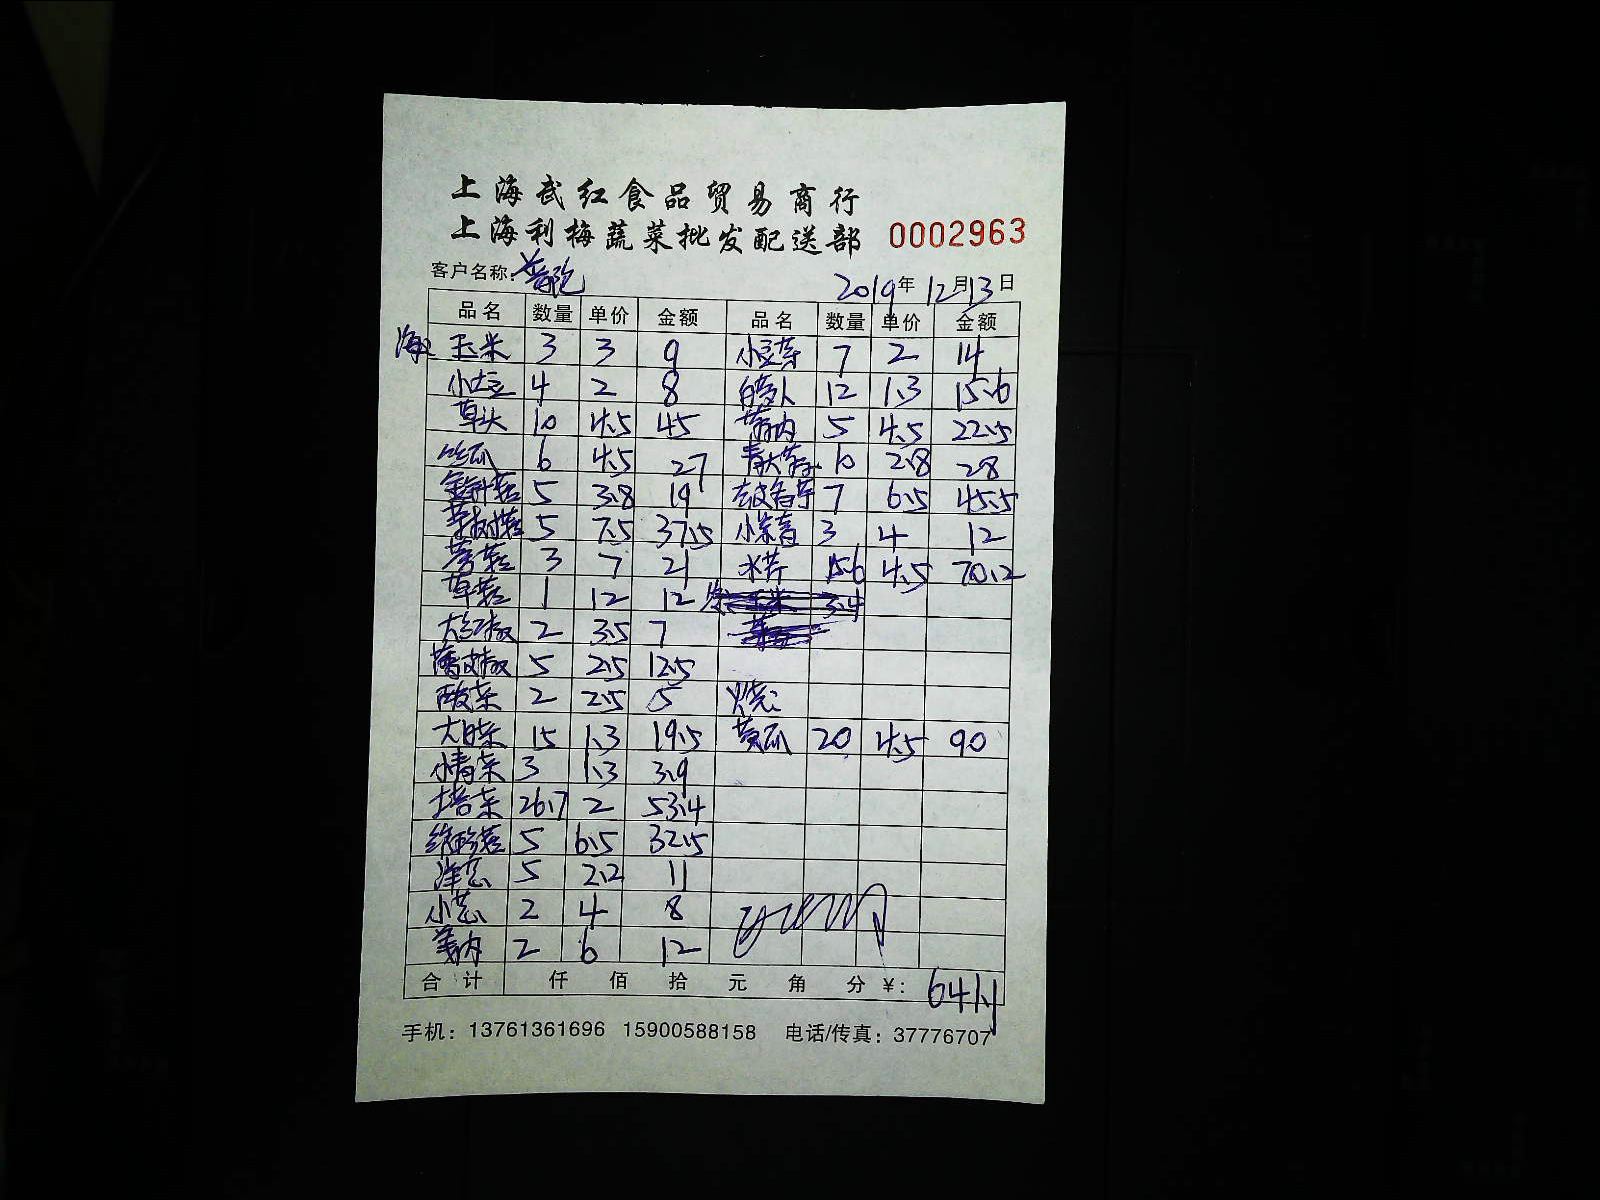 上海武红食品贸易商行
上海利梅蔬菜批发配送部 0002963
客户名称: 2019年12月13日
品名 数量 单价 金额 品名 数量 单价 金额
海: 玉米 3 3 9 小豆芽 7 2 14
小土豆 4 2 8 白萝卜 12 1.3 15.6
草头 10 4.5 45 莴内 5 4.5 22.5
丝瓜 6 4.5 27 青大蒜 10 2.8 28
金针菇 5 3.8 19 去皮香芋 7 6.5 45.5
茶树菇 5 7.5 37.5 小菜 3 4 12
3 7 21 水芹 15.6 4.5 70.2
草菇 1 12 12 3.4
大红椒 2 3.5 7
薄皮椒 5 2.5 12.5
酸菜 2 2.5 5 烧:
大白菜 15 1.3 19.5 黄瓜 20 4.5 90
小青菜 3 1.3 3.9
塔菜 26.7 2 53.4
5 6.5 32.5
洋葱 5 2.2 11
小葱 2 4 8
姜肉 2 6 12
合计 仟 佰 拾 元 角 分 ¥: 641.1
手机: 13761361696 15900588158 电话/传真: 37776707